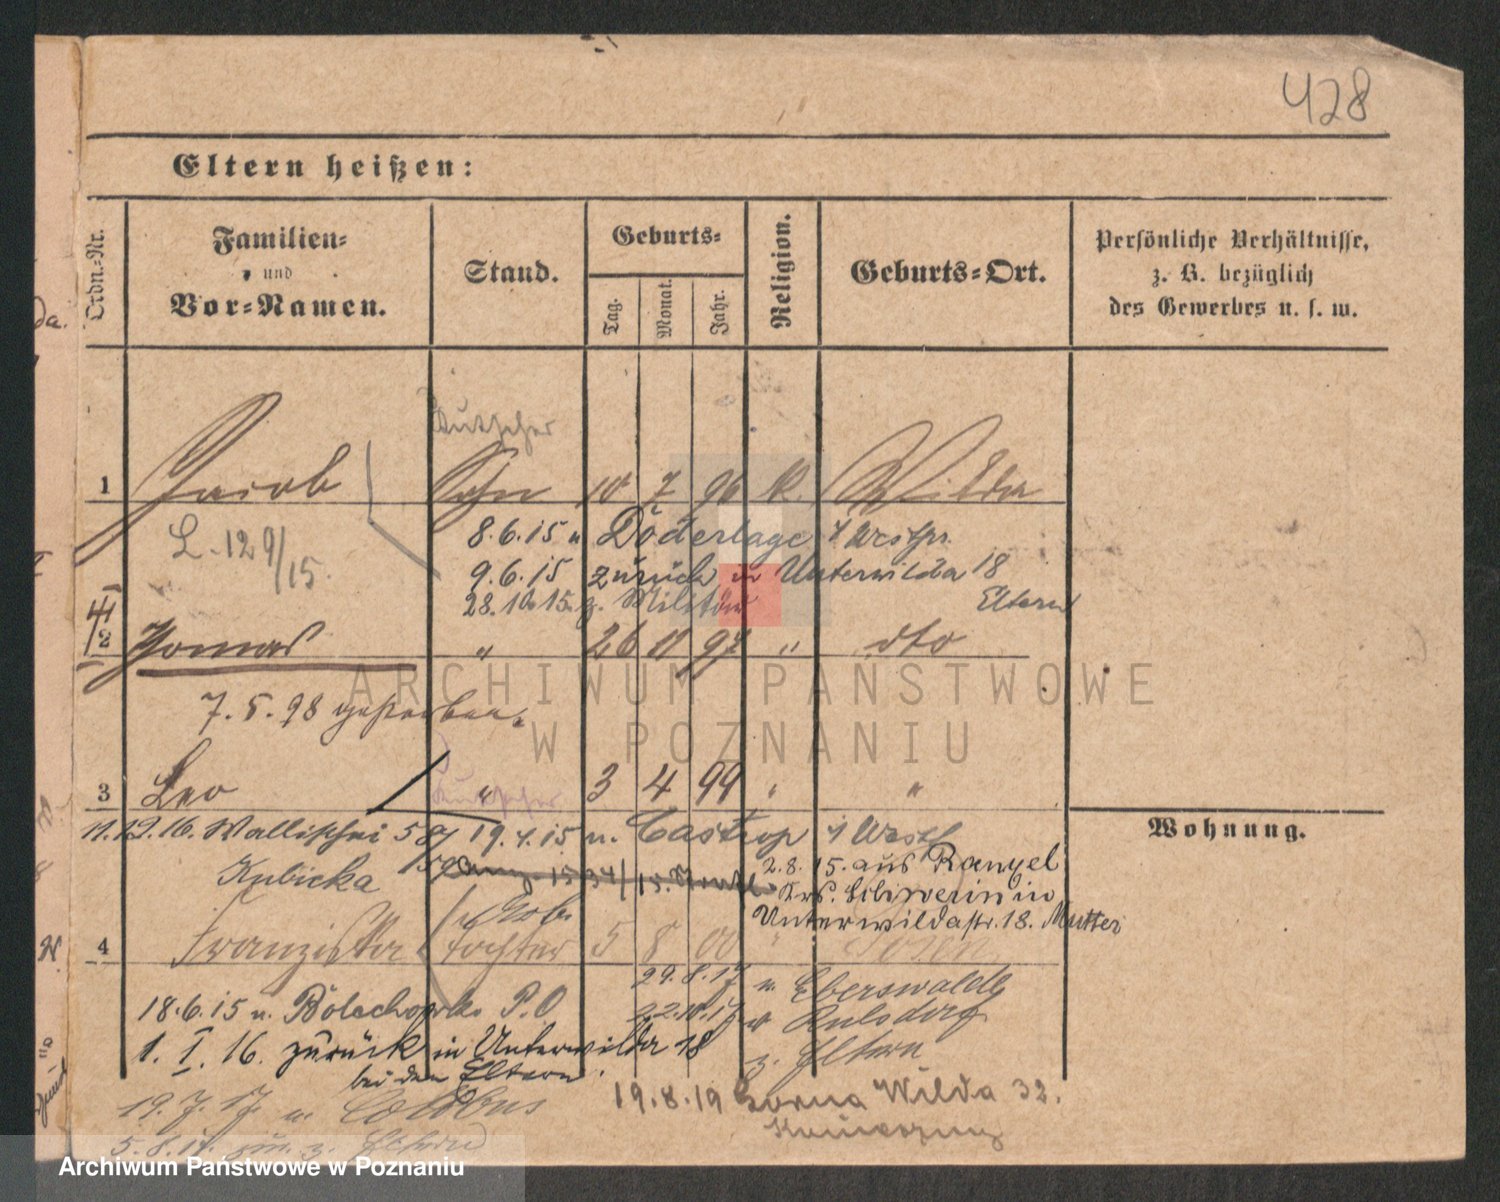 428
Eltern heißen:
Ordn.-Nr.
Familien-
und
Vor-Namen.
Stand.
Geburts-
Tag.
Monat.
Jahr.
Religion.
Geburts-Ort.
Persönliche Verhältnisse,
z. B. bezüglich
des Gewerbes u. s. w.
Kutscher
1 Jacob Sohn 10 7 96 k. Wilda
L. 129/15.
8.6.15 n Döderlage / Westpr.
9.6.15 zurück in Unterwilda 18
Eltern
28.10.15. z. Militär
2 Thomas " 26 11 97 " dto
7.5.98 gestorben.
3 Leo " 3 4 99 " "
Kutscher
Wohnung.
11.12.16. Wallischei 58/ 19.4.15 n. Castrop / Westf
Kubicka
2.8.15. aus
in
Unterwildastr. 18. Mutter
4 Franziska Tochter 5 8 00 " Posen
29.8.17 n. Eberswalde
18.6.15 n. P.O
22.10.17 v
1. I. 16. zurück in Unterwilda 18
z. Eltern
bei den Eltern.
19.7.17. n.
19.8.19 Gorna Wilda 32.
z. Eltern
ARCHIWUM PAŃSTWOWE
W POZNANIU
Archiwum Państwowe w Poznaniu